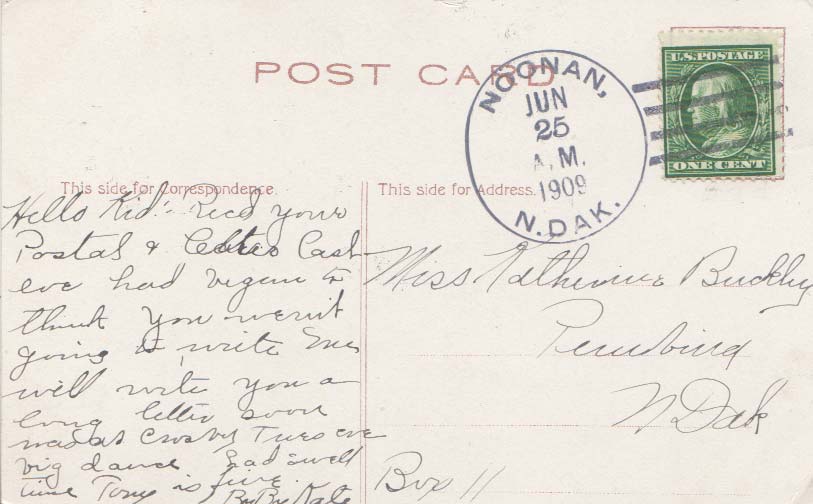 POST CARD
NOONAN,
JUN
25
A.M.
1909
N. DAK.
U.S. POSTAGE
ONE CENT
This side for Correspondence.
This side for Address.
Hello Kid! Recd your
Postal & Last
eve had begun to
think you wern't
going to write
will write you a
long letter soon
was at Crosby Tues eve
big dance had swell
time Tony is fine
By By Kate
Miss Katherine Buckley
Pembina
N Dak
Box 11